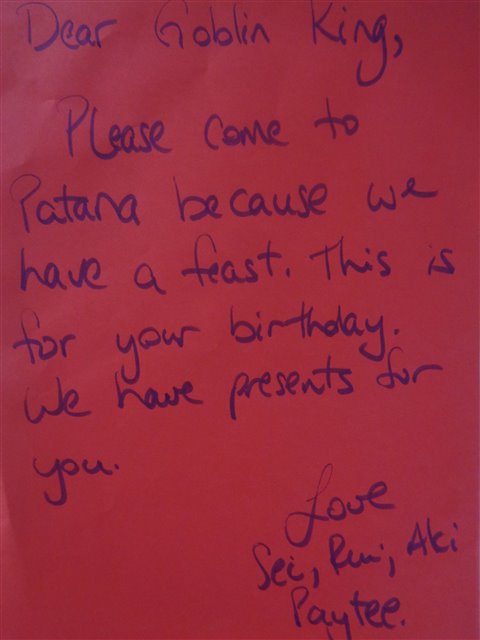 Dear Goblin King,
Please come to
Patana because we
have a feast. This is
for your birthday.
We have presents for
you.
Love
Sei, Rui, Aki
Paytee.